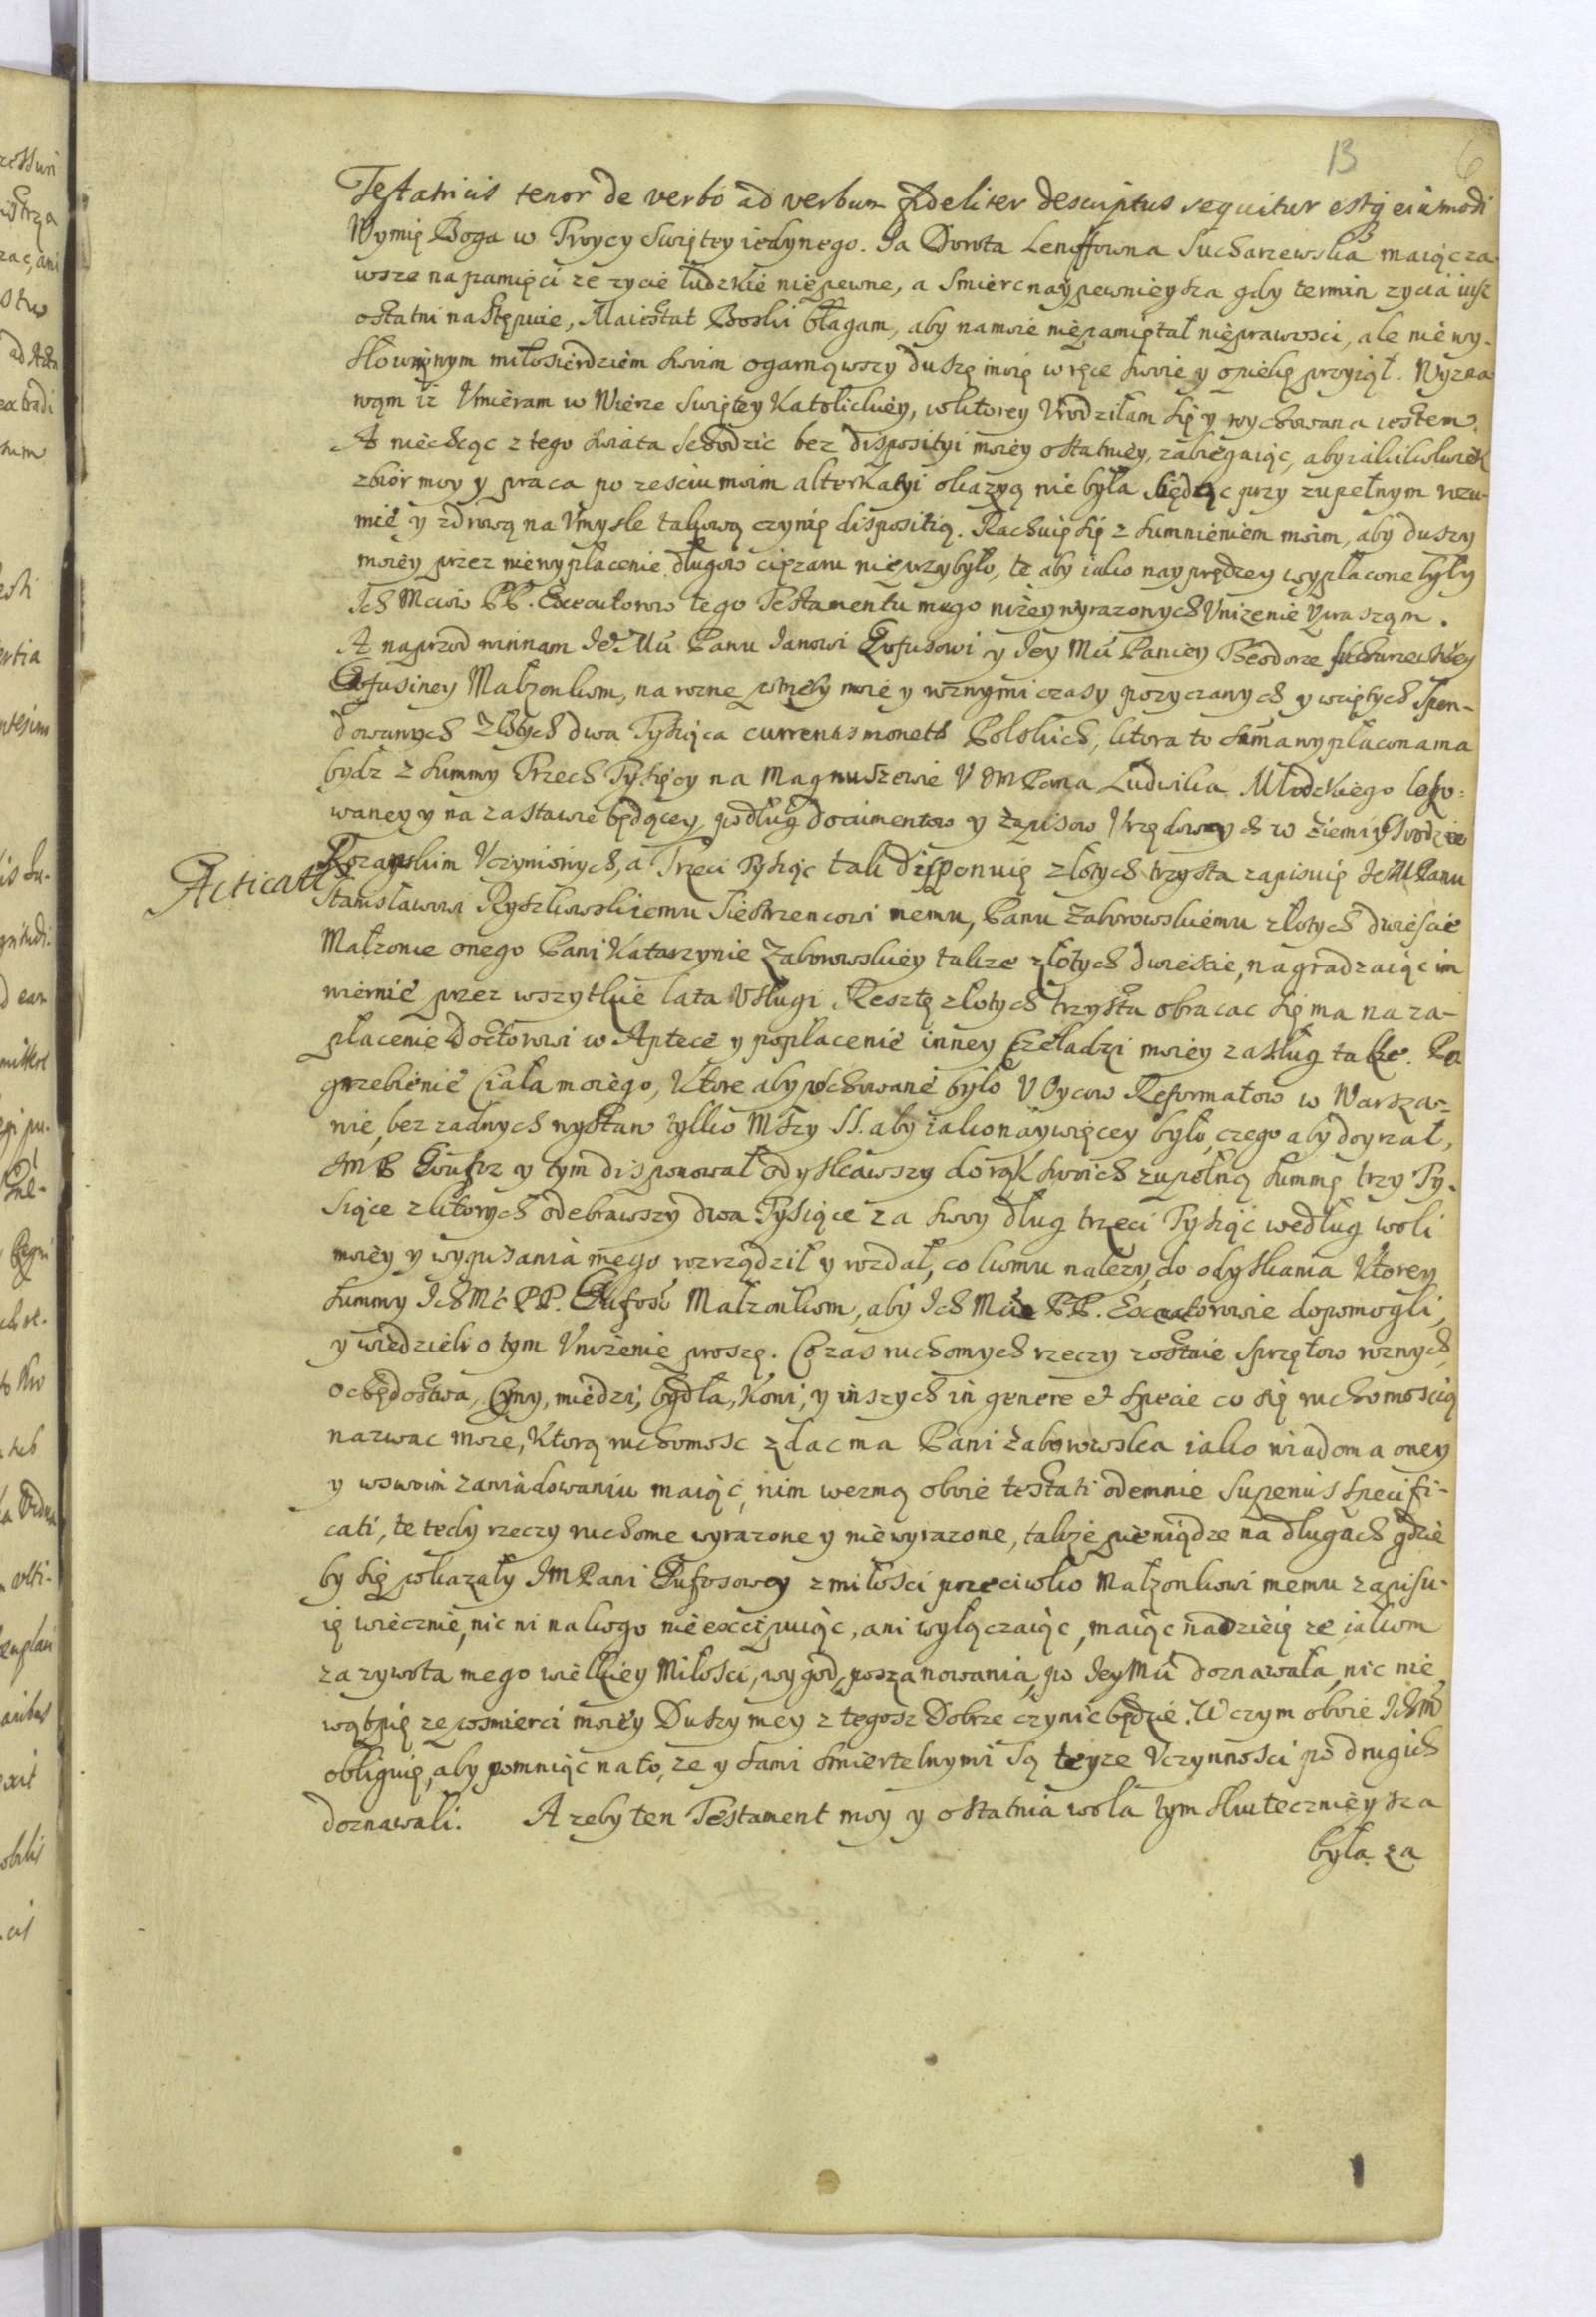 13 6
Testatricis tenor de verbo ad verbum fideliter descriptus sequitur estq eiusmodi
Wymię Boga w Troycy Swiętey iedynego. Ja Dorota Lenffowna Sucharzewska maiąc za
wsze na pamięci ze zycie ludzkie niepewne, a Smierc naypewnieysza gdy termin zycia iusz
ostatni następuie, Maiestat Boski błagam, aby na moie niepamiętał nieprawosci, ale niewy-
słownym miłosierdziem swoim ogarnąwszy duszę moię w ręce swoie y opiekę przyiął. Wyzna
wam iz Vmieram w Wierze Swiętey Katolickiey, w ktorey Vrodziłam się y wychowana iestem.
A niechcąc z tego swiata schodzic bez disposityi moiey ostatniey, zabiegaiąc, aby iakikolwiek
zbiór moy y praca po zesciu moim alterkatyi okazyą nie była będąc przy zupełnym rozu-
mie y zdrową na Vmysle takową czynię dispositią. Rachuię się z sumnieniem moim, aby duszy
moiey przez niewypłacenie długow cięzaru nieprzybyło, te aby iako nayprędzey wypłacone były
Ich Mciow PP. Executorow tego Testamentu mego nizey wyrazonych Vnizenie Vpraszam.
A naprzod winnam Je Mći Panu Janowi Eufusowi y Jey Mći Paniey Theodorze Sucharzewskiey
Eufusiney Małzonkom, na rozne potrzeby moie y roznymi czasy pozyczanych y wziętych Spen-
dowanych Złotych dwa Tysiąca currentis monetæ Polskich, ktora to suma wypłacona ma
bydz z summy Trzech Tysięcy na Magnuszewie V JM Pana Ludwika Młodzkiego loko-
waney y na zastawie będącey podług documentow y zapisow Vrzędowych w ziemi y Grodzie
Acticatc
Rozanskim Vczynionych, a Trzeci Tysiąc tak disponuię złotych trzysta zapisuię Je M Panu
Stanisławowi Ryszkowskiemu Siestrzencowi memu, Panu Zaborowskiemu złotych dwiescie
Małzonce onego Pani Katarzynie Zaborowskiey takze złotych dwiescie, nagradzaiąc im
wiernie przez wszytkie lata Vsługi Resztę złotych trzysta obracac się ma na za-
płacenie Doctorowi w Aptece y popłacenie inney Czeladzi moiey zasług takze. Po
grzebienie Ciała moiego, Ktore aby pochowane było V Oycow Reformatow w Warsza-
wie, bez zadnych wystaw tylko Mszy SS. aby iako naywięcey było, czego aby doyrzał,
JMP Eufusz y tym disponował odyskawszy do rąk swoich zupełną summę trzy Ty-
siące z ktorych odebrawszy dwa Tysiące za swoy dług trzeci Tysiąc według woli
moiey y wypisania mego rozrządził y rozdał, co komu nalezy, do odyskania Ktorey
summy Ich Mć PP. Eufosow Małzonkom, aby Ich Mć PP. Executorowie dopomogli,
y wiedzieli o tym Vnizenie proszę. Co zas ruchomych rzeczy zostaie sprzętow roznych,
ochędostwa, Cyny, miedzi, bydła, Koni, y inszych in genere et specie co się ruchomoscią
nazwac moze, Ktorą ruchomosc zdac ma Pani Zaborowska iako wiadoma oney
y wswoim zawiadowaniu maiąc, nim wezmą oboie testati odemnie superius specifi-
cati, te tedy rzeczy ruchome wyrazone y niewyrazone, takze pieniądze na długach gdzie
by się pokazały JM Pani Eufosowey z miłosci przeciwko Małzonkowi memu zapisu-
ię wiecznie, nic ni na kogo nie excypuiąc, ani wyłączaiąc, maiąc nadzieię ze iakom
za zywota mego wielkiey Miłosci, wygod, poszanowania, po Jey Mći doznawała, nic nie
wątpię ze po smierci moiey Duszy mey z tegosz Dobrze czynic będzie. W czym oboie Ich Mć
obliguię, aby pomniąc na to, ze y sami smiertelnymi są teyze Vczynnosci po drugich
doznawali. A zeby ten Testament moy y ostatnia wola tym skutecznieysza
była za